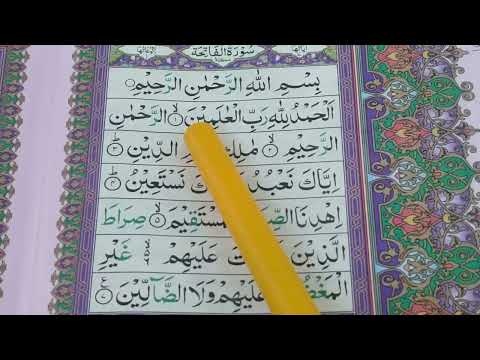 سُوْرَةُ الْفَاتِحَةِ
بِسْمِ اللّٰهِ الرَّحْمٰنِ الرَّحِيْمِ
اَلْحَمْدُ لِلّٰهِ رَبِّ الْعٰلَمِيْنَ ۙ۱ الرَّحْمٰنِ
الرَّحِيْمِ ۙ۲ مٰلِكِ الدِّيْنِ ؕ۳
اِيَّاكَ نَعْبُدُ نَسْتَعِيْنُ ؕ۴
اِهْدِنَا ۙ۵ صِرَاطَ
الَّذِيْنَ عَلَيْهِمْ غَيْرِ
عَلَيْهِمْ وَلَا الضَّآلِّيْنَ ۷